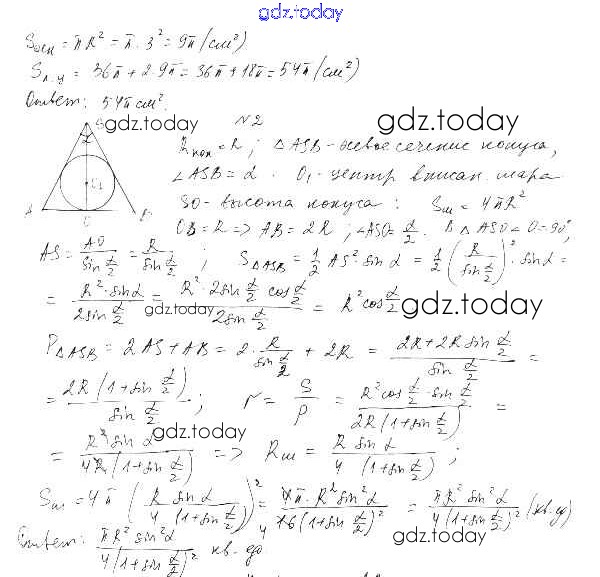 gdz.today
Sосн = πR² = π · 3² = 9π (см²)
Sп.ц = 36π + 2·9π = 36π + 18π = 54π (см²)
Ответ: 54π см².
gdz.today
gdz.today
N2
Rкон = R; ΔASB - осевое сечение конуса,
∠ASB = α. O₁ - центр вписан. шара
SO - высота конуса: Sш = 4πR²
OB = R => AB = 2R; ∠ASO = α/2. В ΔASO ∠O = 90°,
AS = AO / sin α/2 = R / sin α/2; SΔASB = 1/2 AS² · sin α = 1/2 (R / sin α/2)² · sin α =
= R² · sin α / 2sin α/2 = R² · 2sin α/2 cos α/2 / 2sin α/2 = R² cos α/2
gdz.today
gdz.today
PΔASB = 2AS + AB = 2 · R / sin α/2 + 2R = 2R + 2R sin α/2 / sin α/2 =
= 2R (1 + sin α/2) / sin α/2; r = S / P = R² cos α/2 · sin α/2 / 2R (1 + sin α/2) =
gdz.today
= R² sin α / 4R (1 + sin α/2) => Rш = R sin α / 4 (1 + sin α/2);
Sш = 4π (R sin α / 4 (1 + sin α/2))² = 4π · R² sin² α / 16 (1 + sin α/2)² = πR² sin² α / 4 (1 + sin α/2)² (кв. ед)
gdz.today
Ответ: πR² sin² α / 4 (1 + sin α/2)² кв. ед